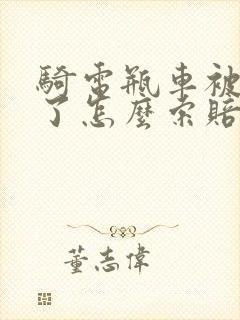 騎電瓶車被
了怎麼索賠
董志偉